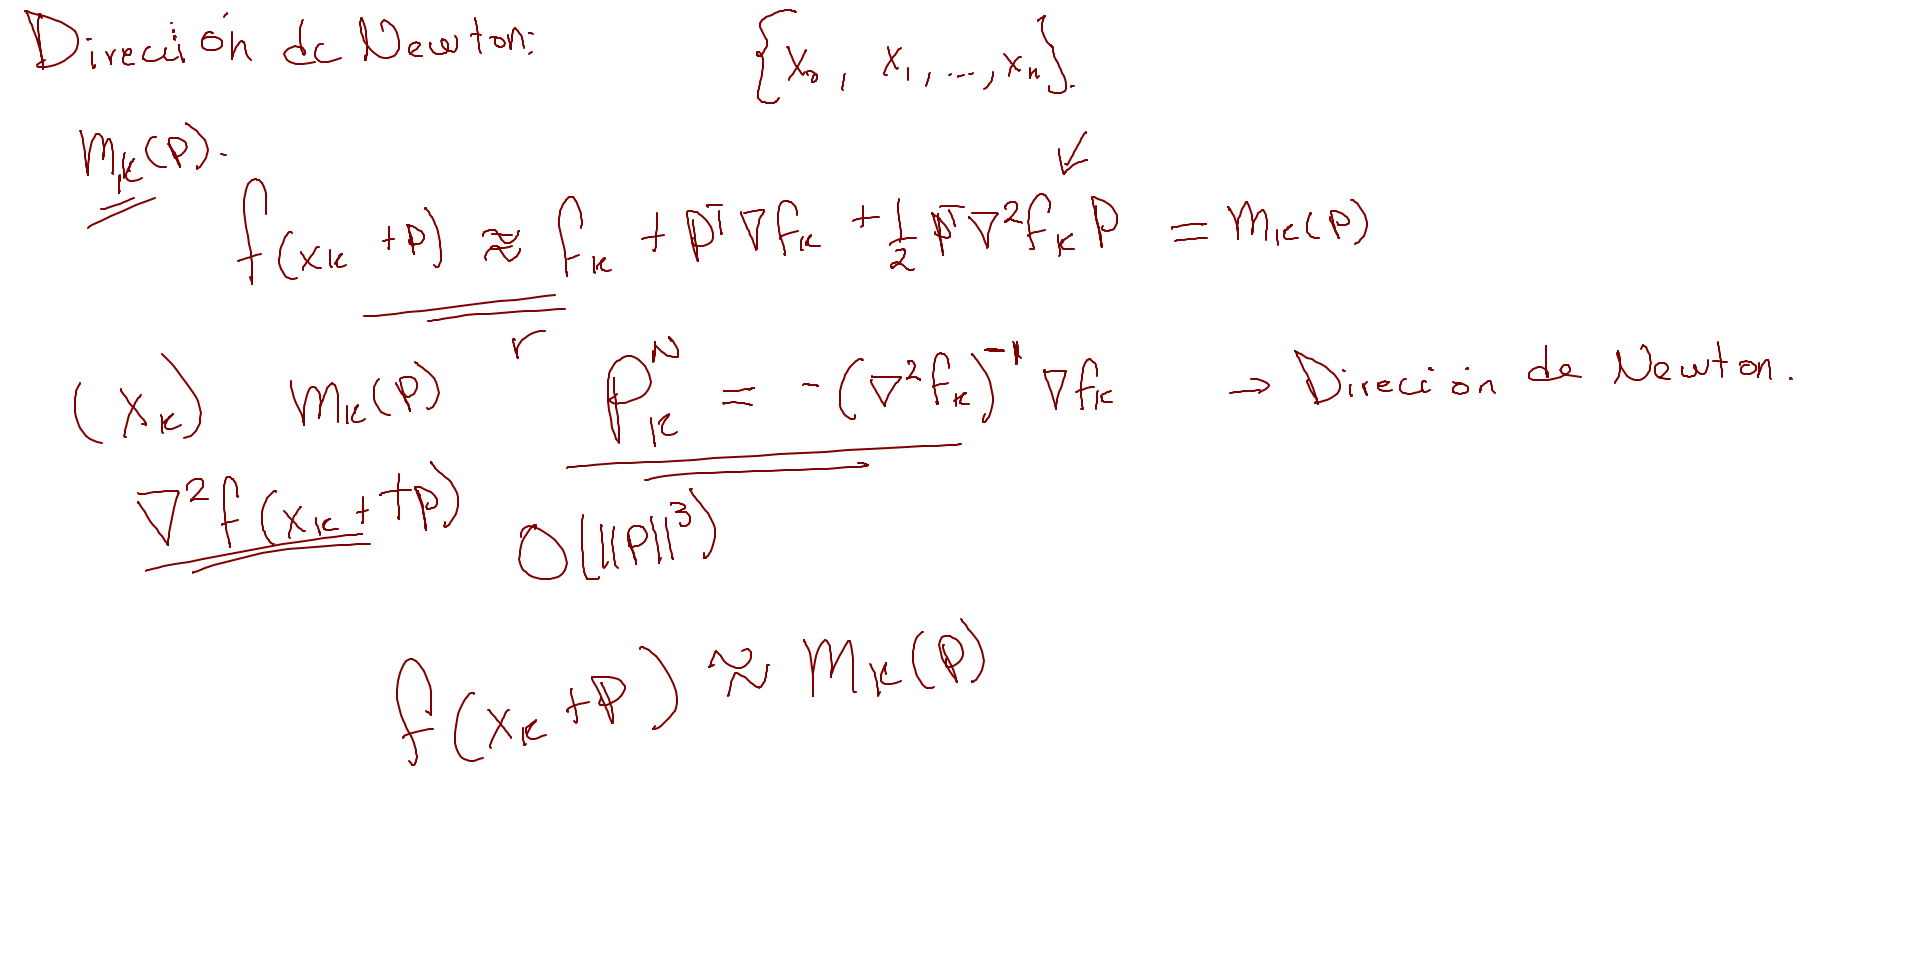 Dirección de Newton: {x₀, x₁, ..., xₙ}.
mₖ(p).
f(xₖ +p) ≈ fₖ + pᵀ∇fₖ + 1/2 pᵀ∇²fₖ p = mₖ(p)
r
(xₖ) mₖ(p) pₖᴺ = -(∇²fₖ)⁻¹ ∇fₖ → Dirección de Newton.
∇²f(xₖ + tp) O(||p||³)
f(xₖ +p) ≈ mₖ(p)